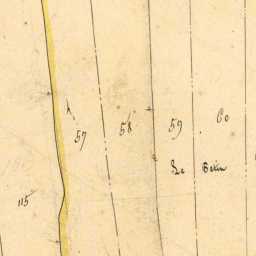 57
58
59
60
Le
115